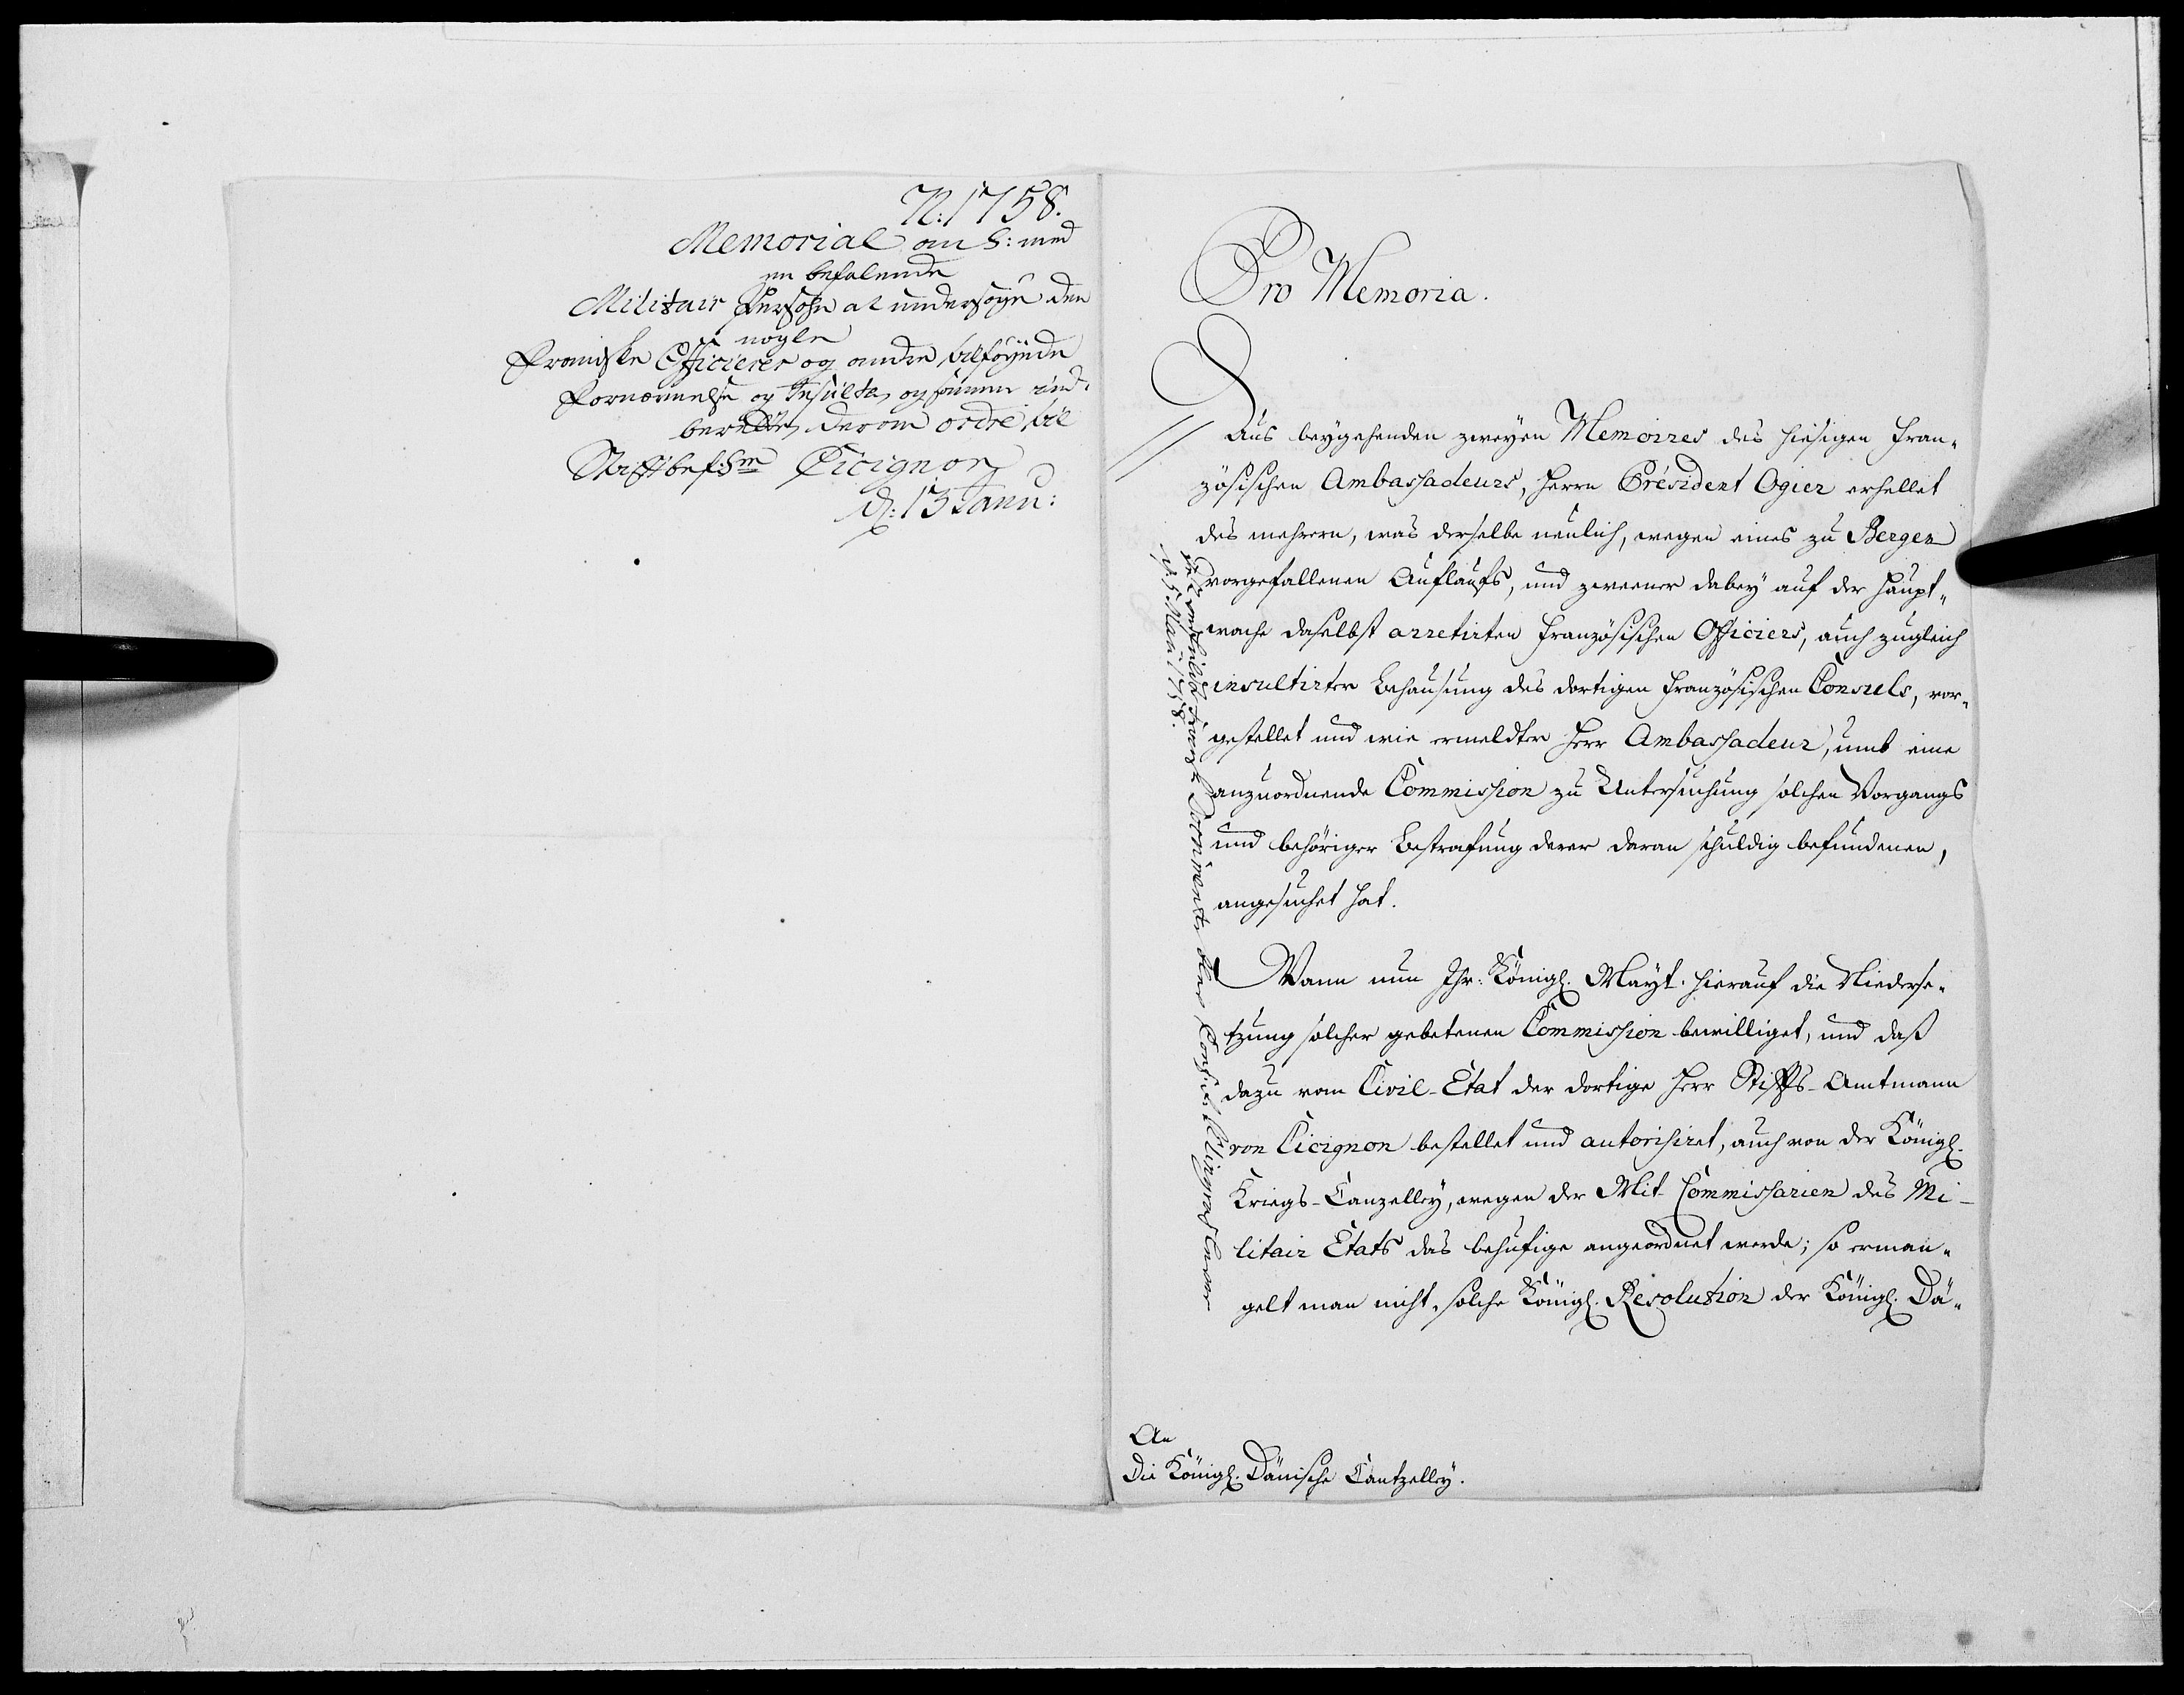 N: 1758.
Memorial an S: med
en befalende
Militair Persohn at undersøge den
nogle
Franske Officierer og andre tilføyede
Fornærmelse og Insulter og saimen ind-
berette, derom ordre til
Stiftbef:Sm Cicignon
d: 13 Janu:
Pro Memoria.
Aus beygehenden zweyen Memoires des hiesigen Fran-
zösischen Ambassadeurs, Herrn Président Ogier erhellet
des mehrern, was derselbe neulich, wegen eines zu Bergen
vorgefallenen Auflaufs, und zweener dabey auf der Haupt-
wache daselbst arretirten Französischen Officiers, auch zugleich
insultirter Behausung des dortigen Französischen Consuls, vor-
gestellet und wie ermeldter Herr Ambassadeur, umb eine
anzuordnende Commission zu Untersuchung solchen Vorgangs
und behöriger Bestrafung derer daran schuldig befundenen,
angesuchet hat.
Wann nun Ihr: Königl. Mayt. hierauf die Niederse-
tzung solcher gebetenen Commission bewilliget, und daß
dazu vom Civil-Etat der dortige Herr Stiffts-Amtmann
von Cicignon bestellet und autorisiret, auch von der Königl.
Kriegs-Canzelley, wegen der Mit-Commissarien des Mi-
litair Etats das behufige angeordnet werde; so erman-
gelt man nicht, solche Königl. Resolution der Königl. Dä-
An
Die Königl. Dänische Cantzelley.
d. 5 Maii 1758.